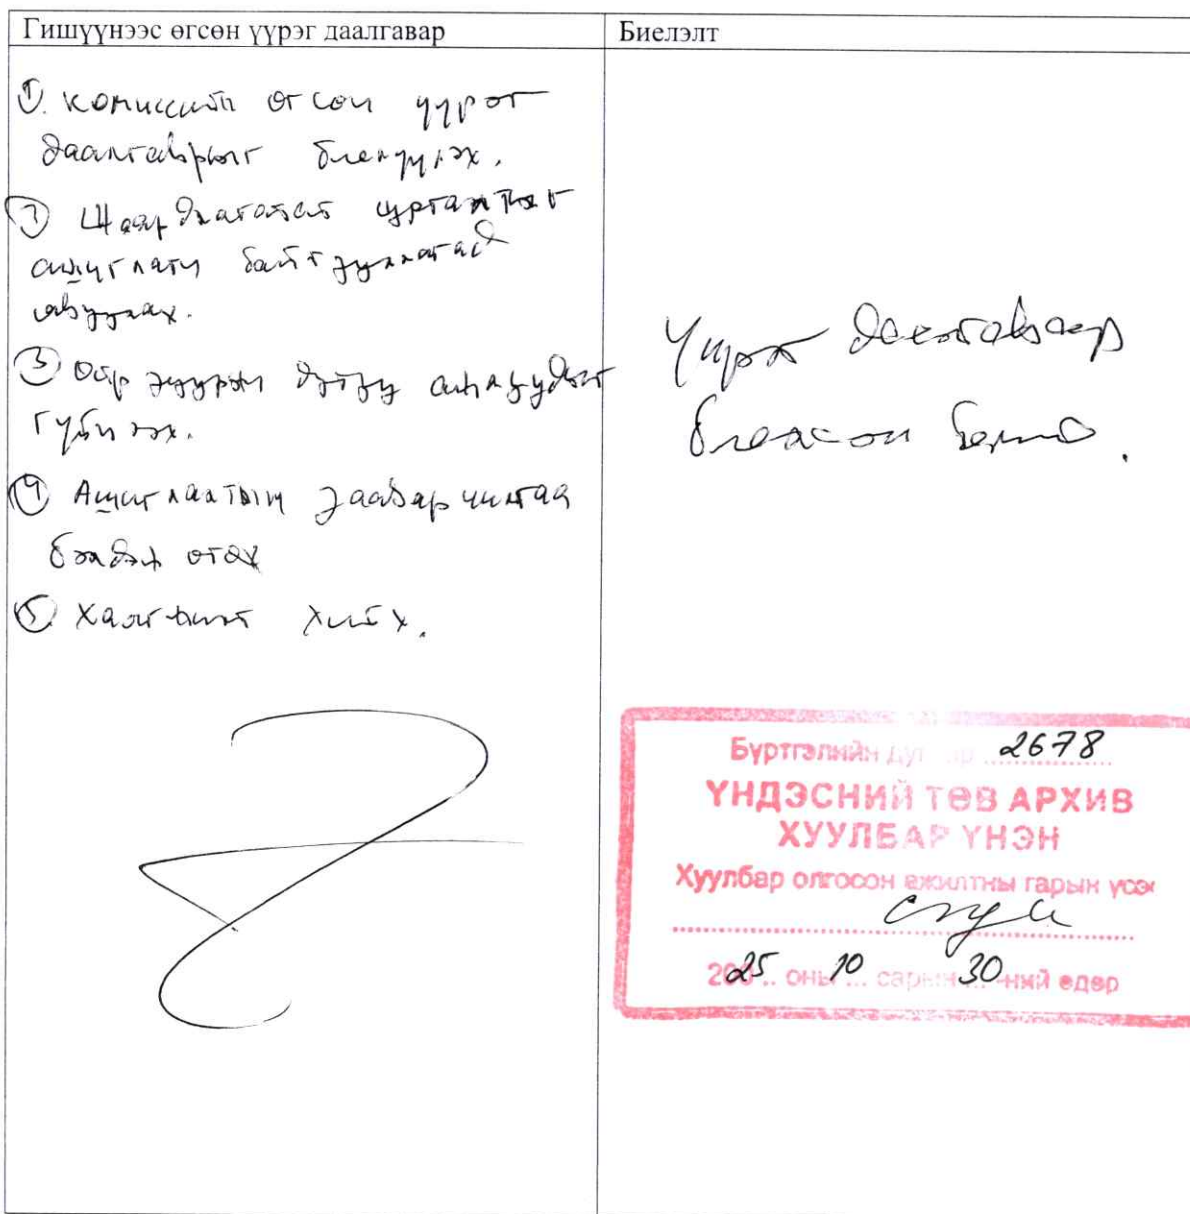 Гишүүнээс өгсөн үүрэг даалгавар
① Комиссийн өгсөн үүрэг
даалгаврыг биелүүлэх.
② Шаардлагатай сургалтыг
ашиглагч байгууллагад
явуулах.
③ Ойр зуурын дутуу
гүйцээх.
④ Ашиглалтын заавар
өгөх
⑤ хийх.
Биелэлт
Үүрэг даалгавар
биелсэн болно.
Бүртгэлийн дугаар 2678
ҮНДЭСНИЙ ТӨВ АРХИВ
ХУУЛБАР ҮНЭН
Хуулбар олгосон ажилтны гарын үсэг
2025 оны 10 сарын 30-ний өдөр